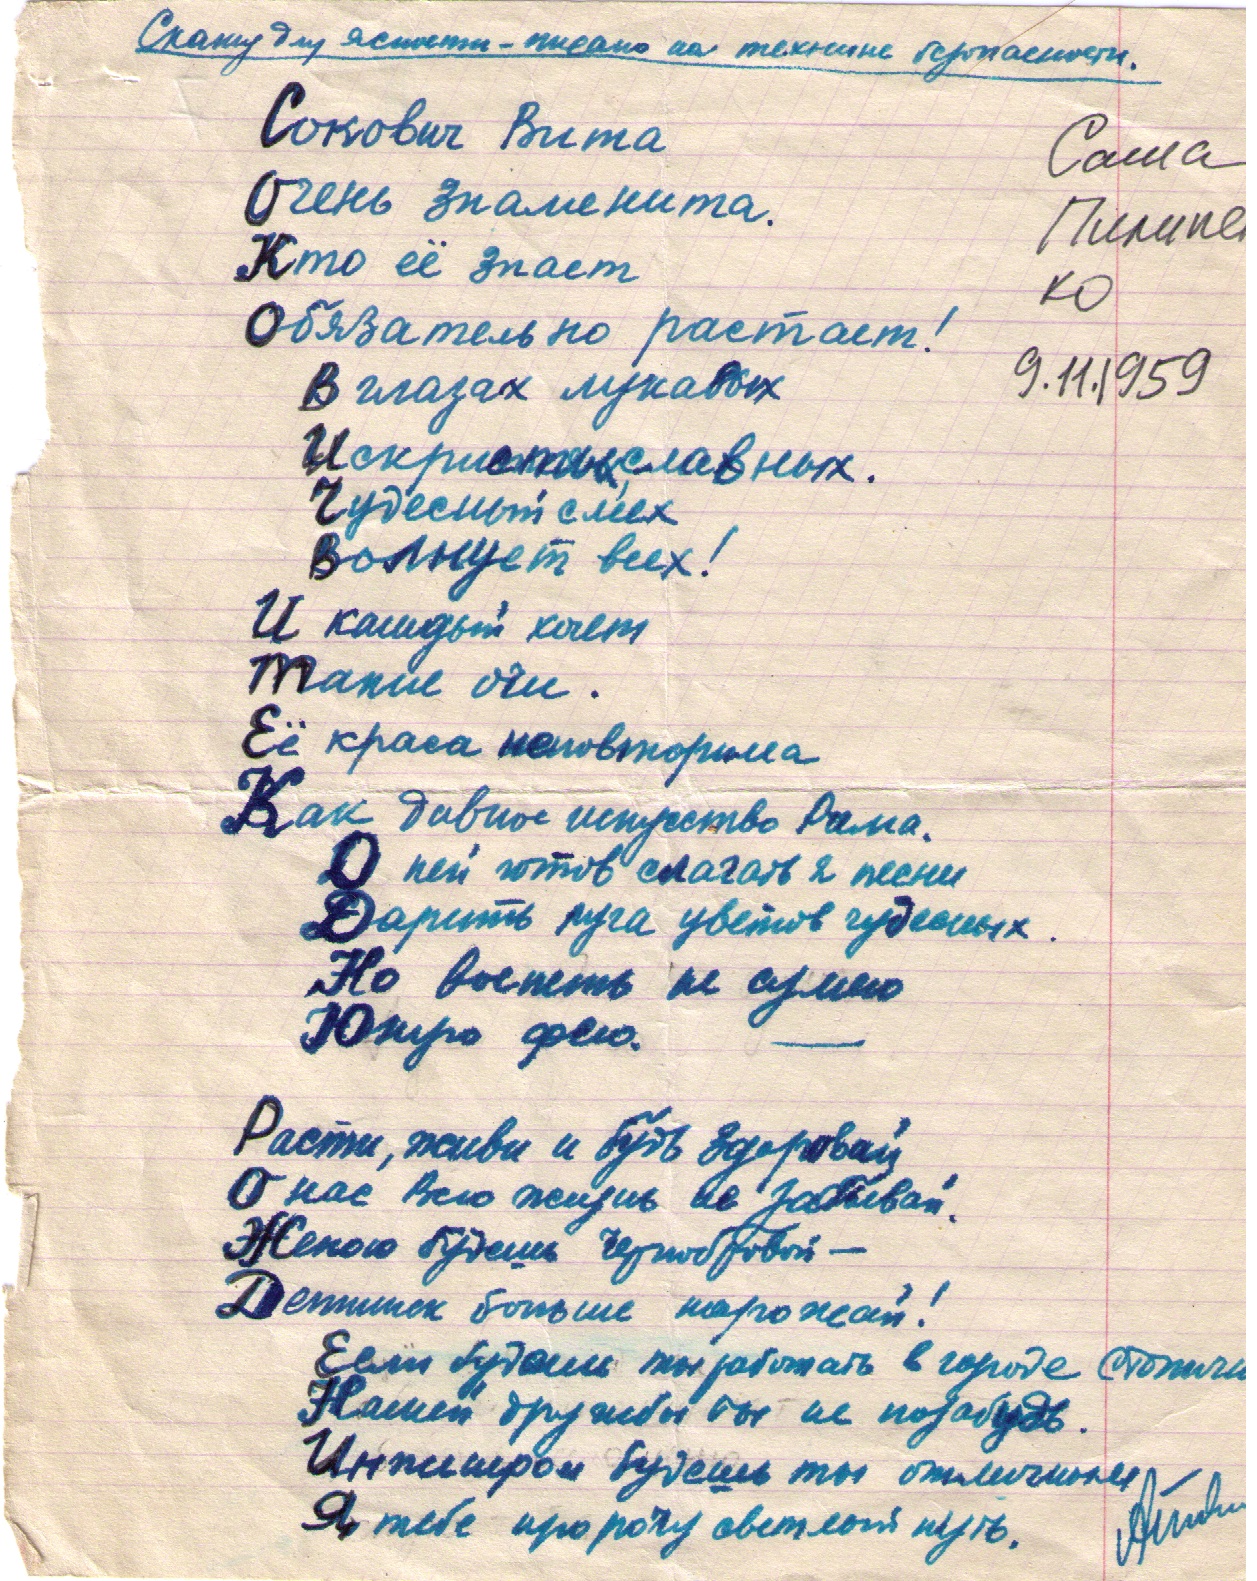 Скажу для ясности - писано на технике безопасности.
Сокович Вита
Очень знаменита.
Кто её знает
Обязательно растает!
В глазах лукавых
Искристых, славных.
Чудесный смех
Волнует всех!
И каждый хочет
Такие очи.
Её краса неповторима
Как дивное искусство Рима.
О ней готов слагать я песни
Дарить луга цветов чудесных.
Но воспеть не сумею
Юную фею.
Саша
Пилипен
ко
9.11.1959
Расти, живи и будь здоровой
О нас всю жизнь не забывай.
Женою будешь чернобровой —
Детишек больше нарожай!
Если будешь ты работать в городе столичн
Нашей дружбы ты не позабудь.
Инженером будешь ты отличным
Я тебе пророчу светлый путь.